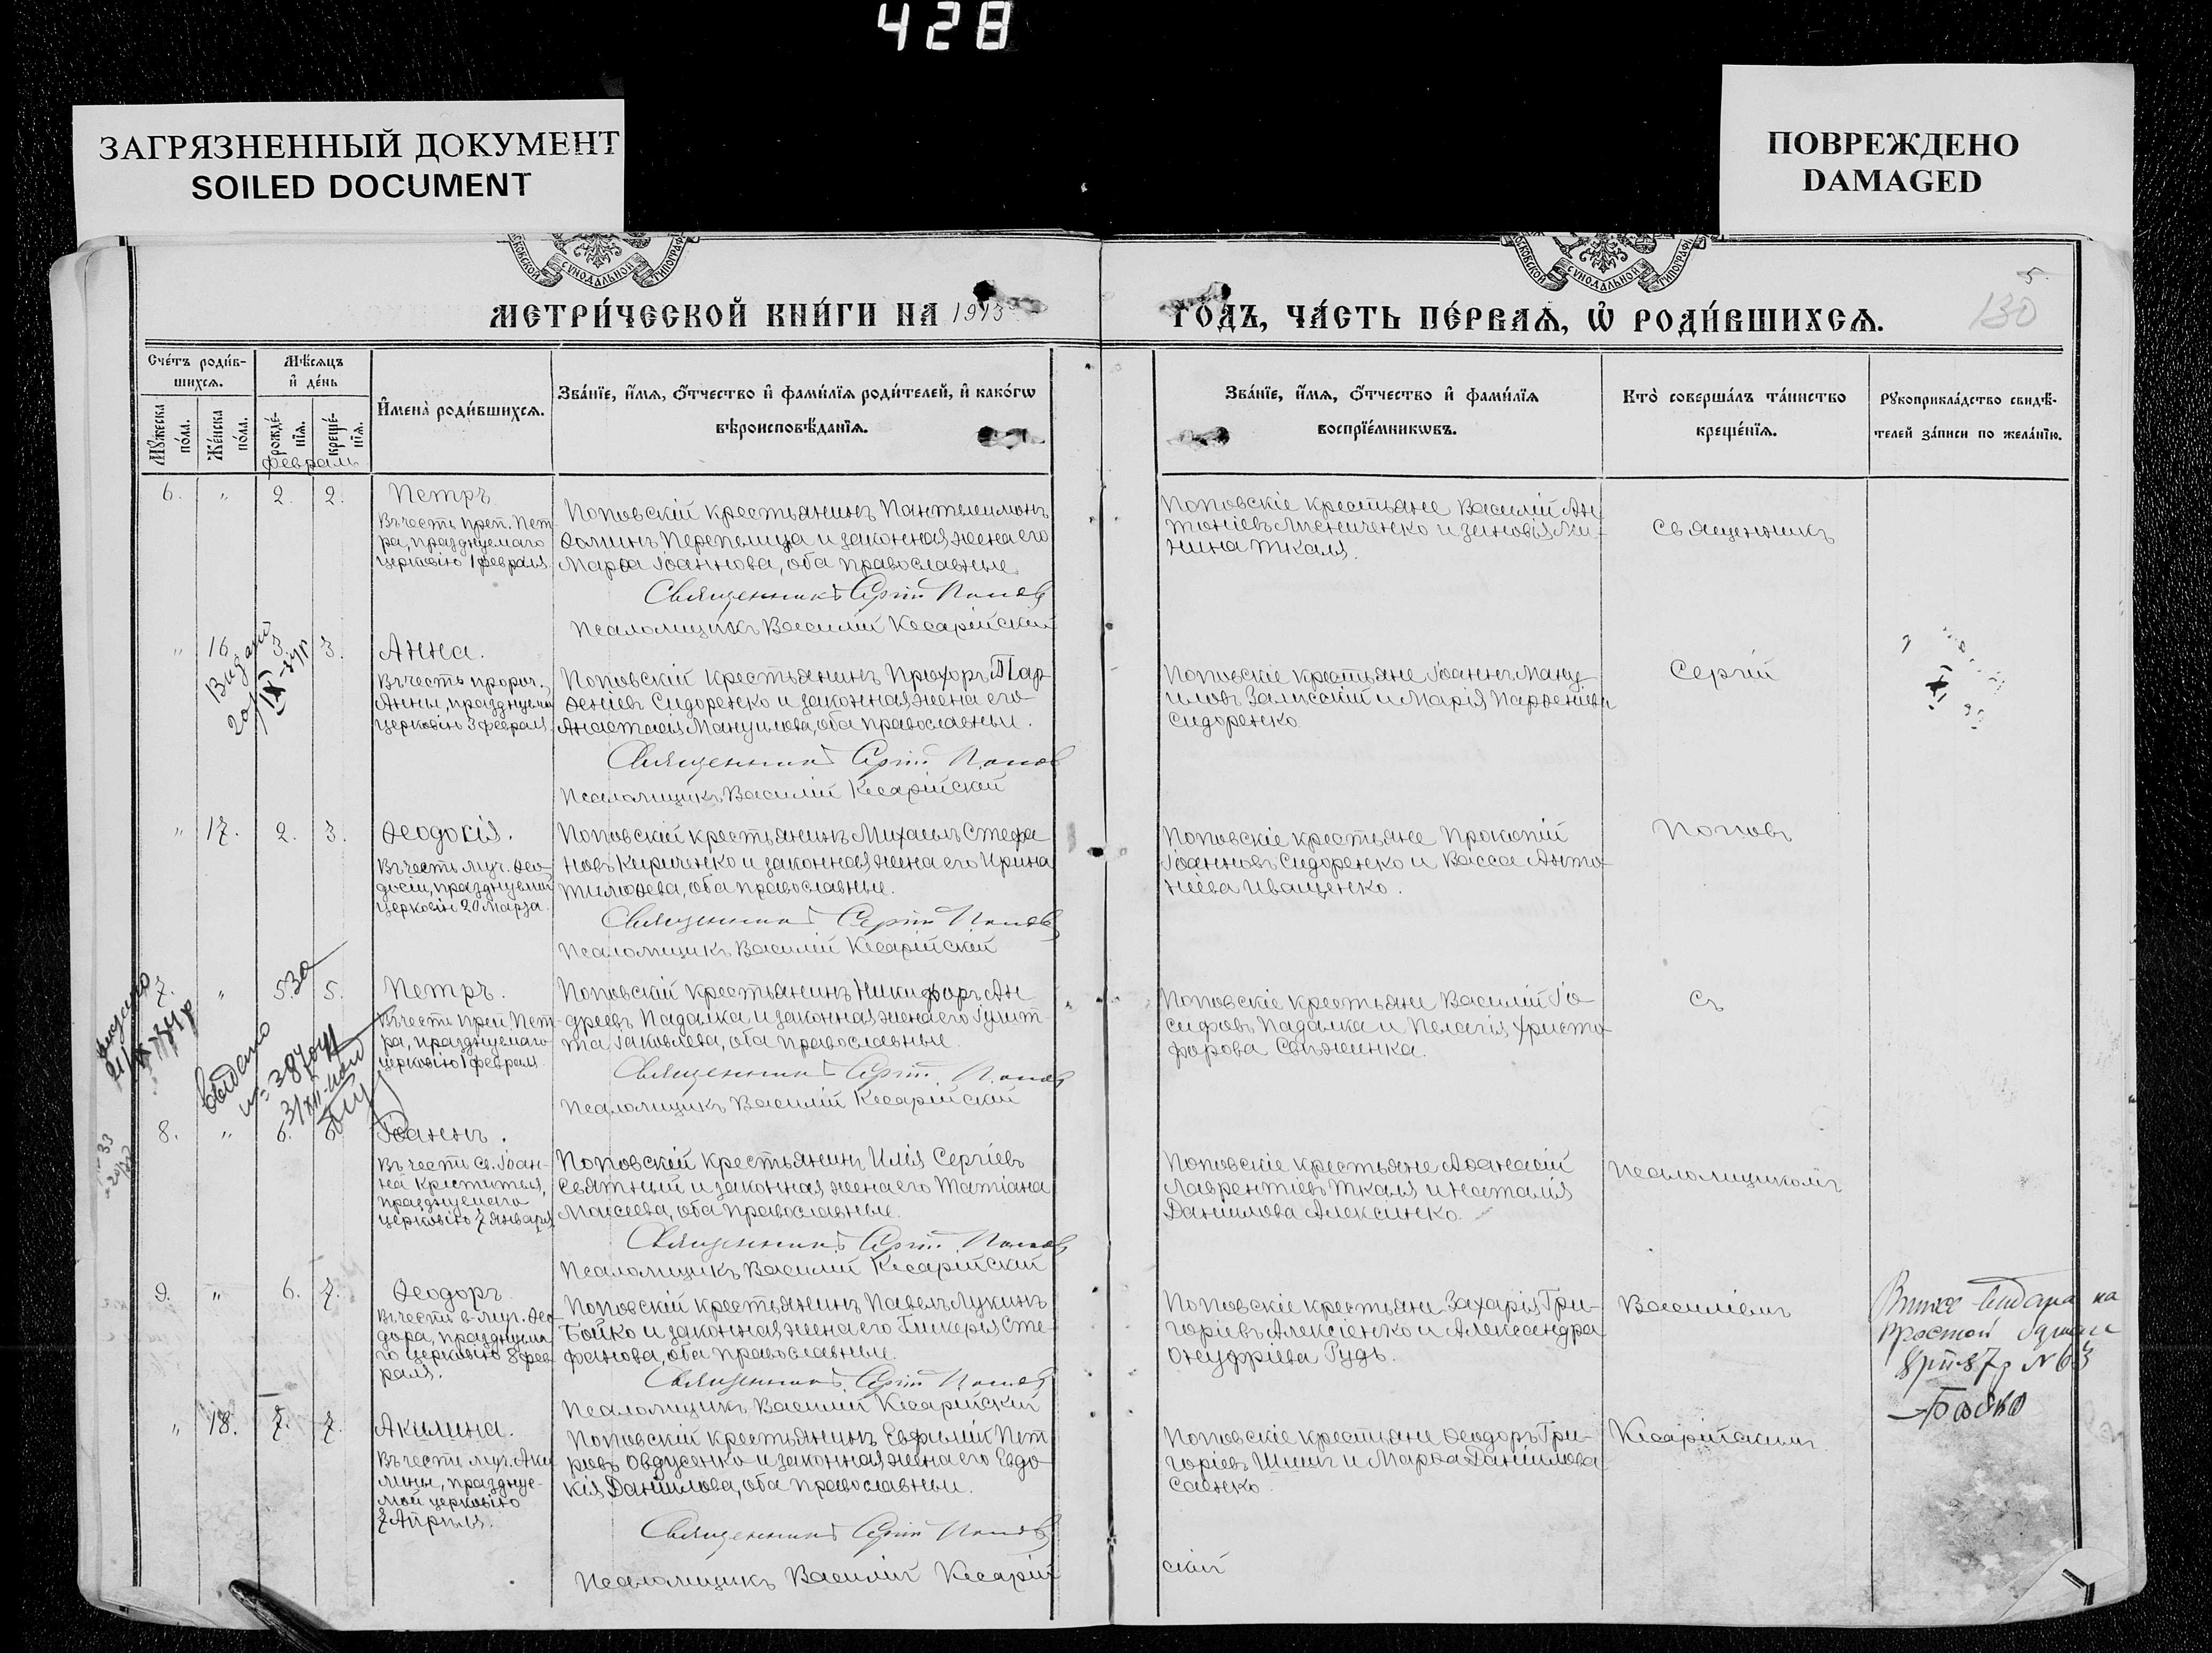 428
ЗАГРЯЗНЕННЫЙ ДОКУМЕНТ
SOILED DOCUMENT
ПОВРЕЖДЕНО
DAMAGED
СѴНОДАЛЬНОЙ
СѴНОДАЛЬНОЙ
5
130
МЕТРИ́ЧЕСКОЙ КНИ́ГИ НА 1913
ГО́ДЪ, ЧА́СТЬ ПЕ́РВАѦ, Ѡ҆ РОДИ́ВШИХСѦ.
Сче́тъ роди́в-
шихсѧ.
Мѣ́сѧцъ
и҆ де́нь
Мꙋ́жеска
по́ла.
Же́нска
по́ла.
рожде́-
нїѧ.
креще́-
нїѧ.
февраль
И҆мена̀ роди́вшихсѧ.
Зва́нїе, и҆́мѧ, ѻ҆́тчество и҆ фами́лїѧ роди́телей, и҆ како́гѡ
вѣроисповѣ́данїѧ.
Зва́нїе, и҆́мѧ, ѻ҆́тчество и҆ фами́лїѧ
воспрїе́мникѡвъ.
Кто̀ соверша́лъ та́инство
креще́нїѧ.
Рꙋкоприкла́дство свидѣ́-
телей за́писи по жела́нїю.
6. " 2. 2. Петръ
Въ честь преп. Пет-
ра, празднуемаго
церковію 1 февраля.
Поповскій крестьянинъ Пантелеимонъ
Ѳоминъ Перепелица и законная жена его
Марѳа Іоаннова, оба православные.
Священникъ Сергій Поповъ
Псаломщикъ Василій Кесарійскій
Поповскіе крестьяне Василій Ан-
тоніевъ и Зиновія
Ткаля.
Священникъ
" 16 3. 3. Анна.
Видано
20/IX
Въ честь пророч.
Анны, празднуемой
церковію 3 февраля.
Поповскій крестьянинъ Прохоръ Пар-
ѳеніевъ Сидоренко и законная жена его
Анастасія Мануилова, оба православные.
Священникъ Сергій Поповъ
Псаломщикъ Василій Кесарійскій
Поповскіе крестьяне Іоаннъ Ману-
иловъ Залѣсскій и Марія Парѳеніева
Сидоренко.
Сергій
" 17. 2. 3. Ѳеодосія.
Въ честь муч. Ѳео-
досіи, празднуемой
церковію 20 Марта.
Поповскій крестьянинъ Михаилъ Стефа-
новъ Кириченко и законная жена его Ирина
Тимоѳеева, оба православные.
Священникъ Сергій Поповъ
Псаломщикъ Василій Кесарійскій
Поповскіе крестьяне Прокопій
Іоанновъ Сидоренко и Васса Анто-
ніева Иващенко.
Поповъ
7. " 5. 5. Петръ.
Въ честь преп. Пет-
ра, празднуемаго
церковію 1 февраля.
Поповскій крестьянинъ Никифоръ Ан-
дреевъ Падалка и законная жена его Іулит-
та Іаковлева, оба православные.
Священникъ Сергій Поповъ
Псаломщикъ Василій Кесарійскій
Поповскіе крестьяне Василій Іо-
сифовъ Падалка и Пелагія Христо-
форова
Съ
8. " 6. 6. Іоаннъ.
Въ честь Св. Іоан-
на Крестителя,
празднуемаго
церковію 7 января.
Поповскій крестьянинъ Илія Сергіевъ
Святный и законная жена его Татіана
Моисеева, оба православные.
Священникъ Сергій Поповъ
Псаломщикъ Василій Кесарійскій
Поповскіе крестьяне Аѳанасій
Лаврентіевъ Ткаля и Наталія
Даніилова Алексіенко.
псаломщикомъ
9. " 6. 7. Ѳеодоръ.
Въ честь в-муч. Ѳео-
дора, празднуема-
го церковію 8 фев-
раля.
Поповскій крестьянинъ Павелъ Лукинъ
Бойко и законная жена его Гликерія Сте-
фанова, оба православные.
Священникъ Сергій Поповъ
Псаломщикъ Василій Кесарійскій
Поповскіе крестьяне Захарія Гри-
горіевъ Алексіенко и Александра
Онуфріева Рудь.
Василіемъ
" 18. 7. 7. Акилина.
Въ честь муч. Аки-
лины, празднуе-
мой церковію
7 Апрѣля.
Поповскій крестьянинъ Евфимій Пет-
ровъ Овдусенко и законная жена его Евдо-
кія Даніилова, оба православные.
Священникъ Сергій Поповъ
Псаломщикъ Василій Кесарій
скій
Поповскіе крестьяне Ѳеодоръ Гри-
горіевъ и Марѳа Даніилова
Саенко.
Кесарійскимъ.